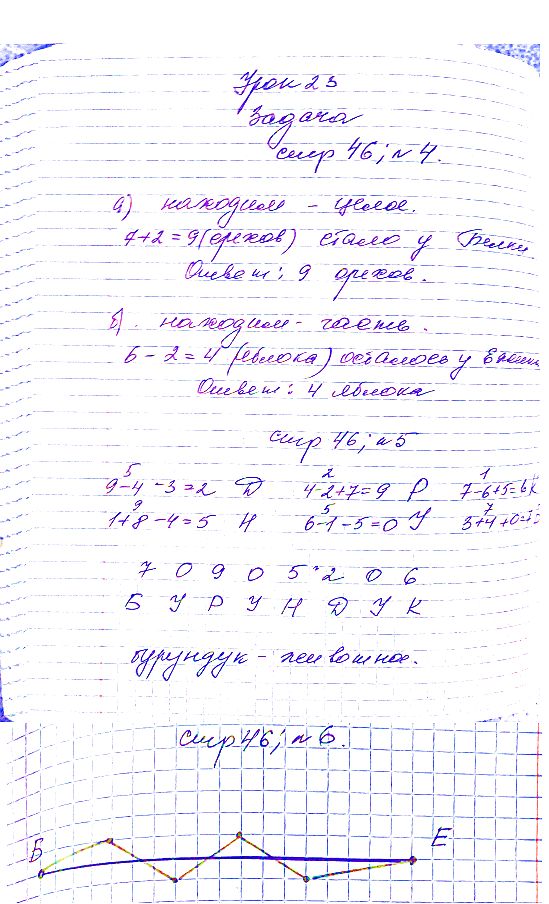 Урок 23
Задача
стр 46; №4.
а) находим - целое.
7+2=9(орехов) стало у Белки
Ответ: 9 орехов.
б). находим - часть.
6-2=4 (яблока) осталось у
Ответ: 4 яблока
стр 46; №5
5 2 1
9-4-3=2 Д 4-2+7=9 Р 7-6+5=6 К
9 5 7
1+8-4=5 Н 6-1-5=0 У 3+4+0=7
7 0 9 0 5 2 0 6
Б У Р У Н Д У К
бурундук - животное.
стр 46; №6.
Б Е